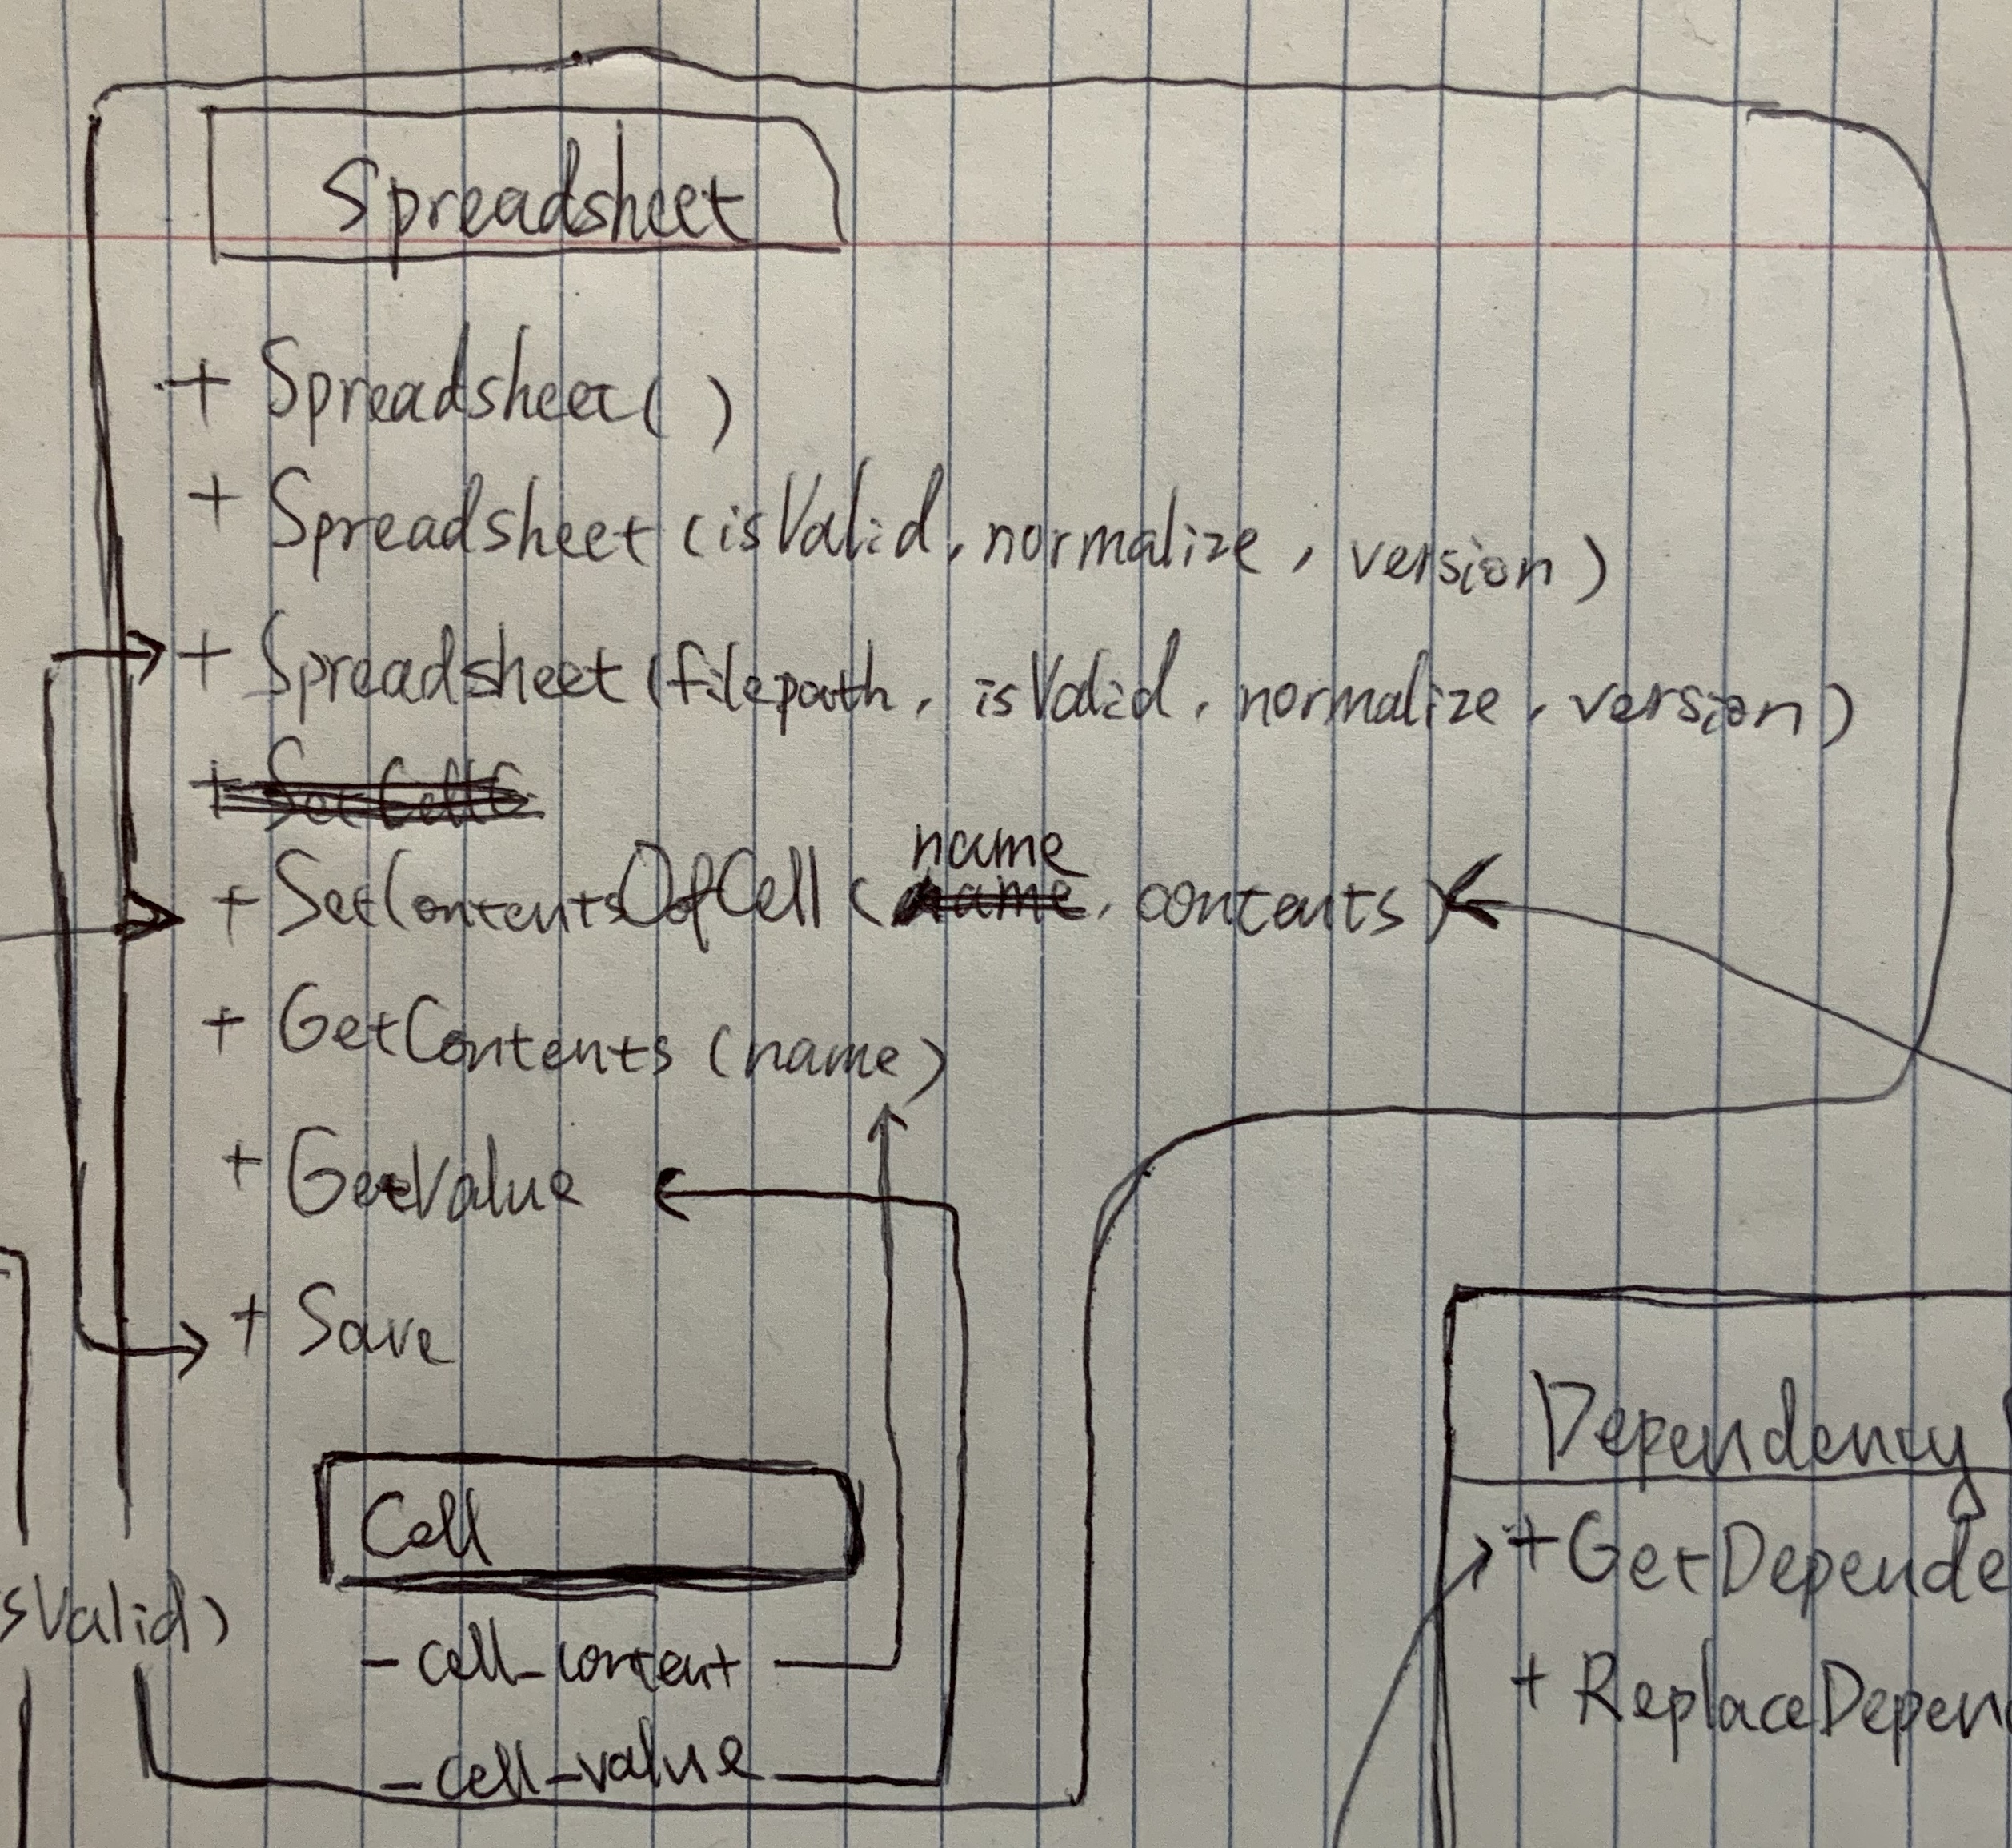 Spreadsheet
+ Spreadsheet( )
+ Spreadsheet (isValid, normalize, version)
+ Spreadsheet (filepath, isValid, normalize, version)
+ SetCellC
name
+ SetContentsOfCell (name, contents)
+ GetContents (name)
+ GetValue
+ Save
Cell
- cell_content
- cell_value
sValid)
Dependency
+ GetDepende
+ ReplaceDepen